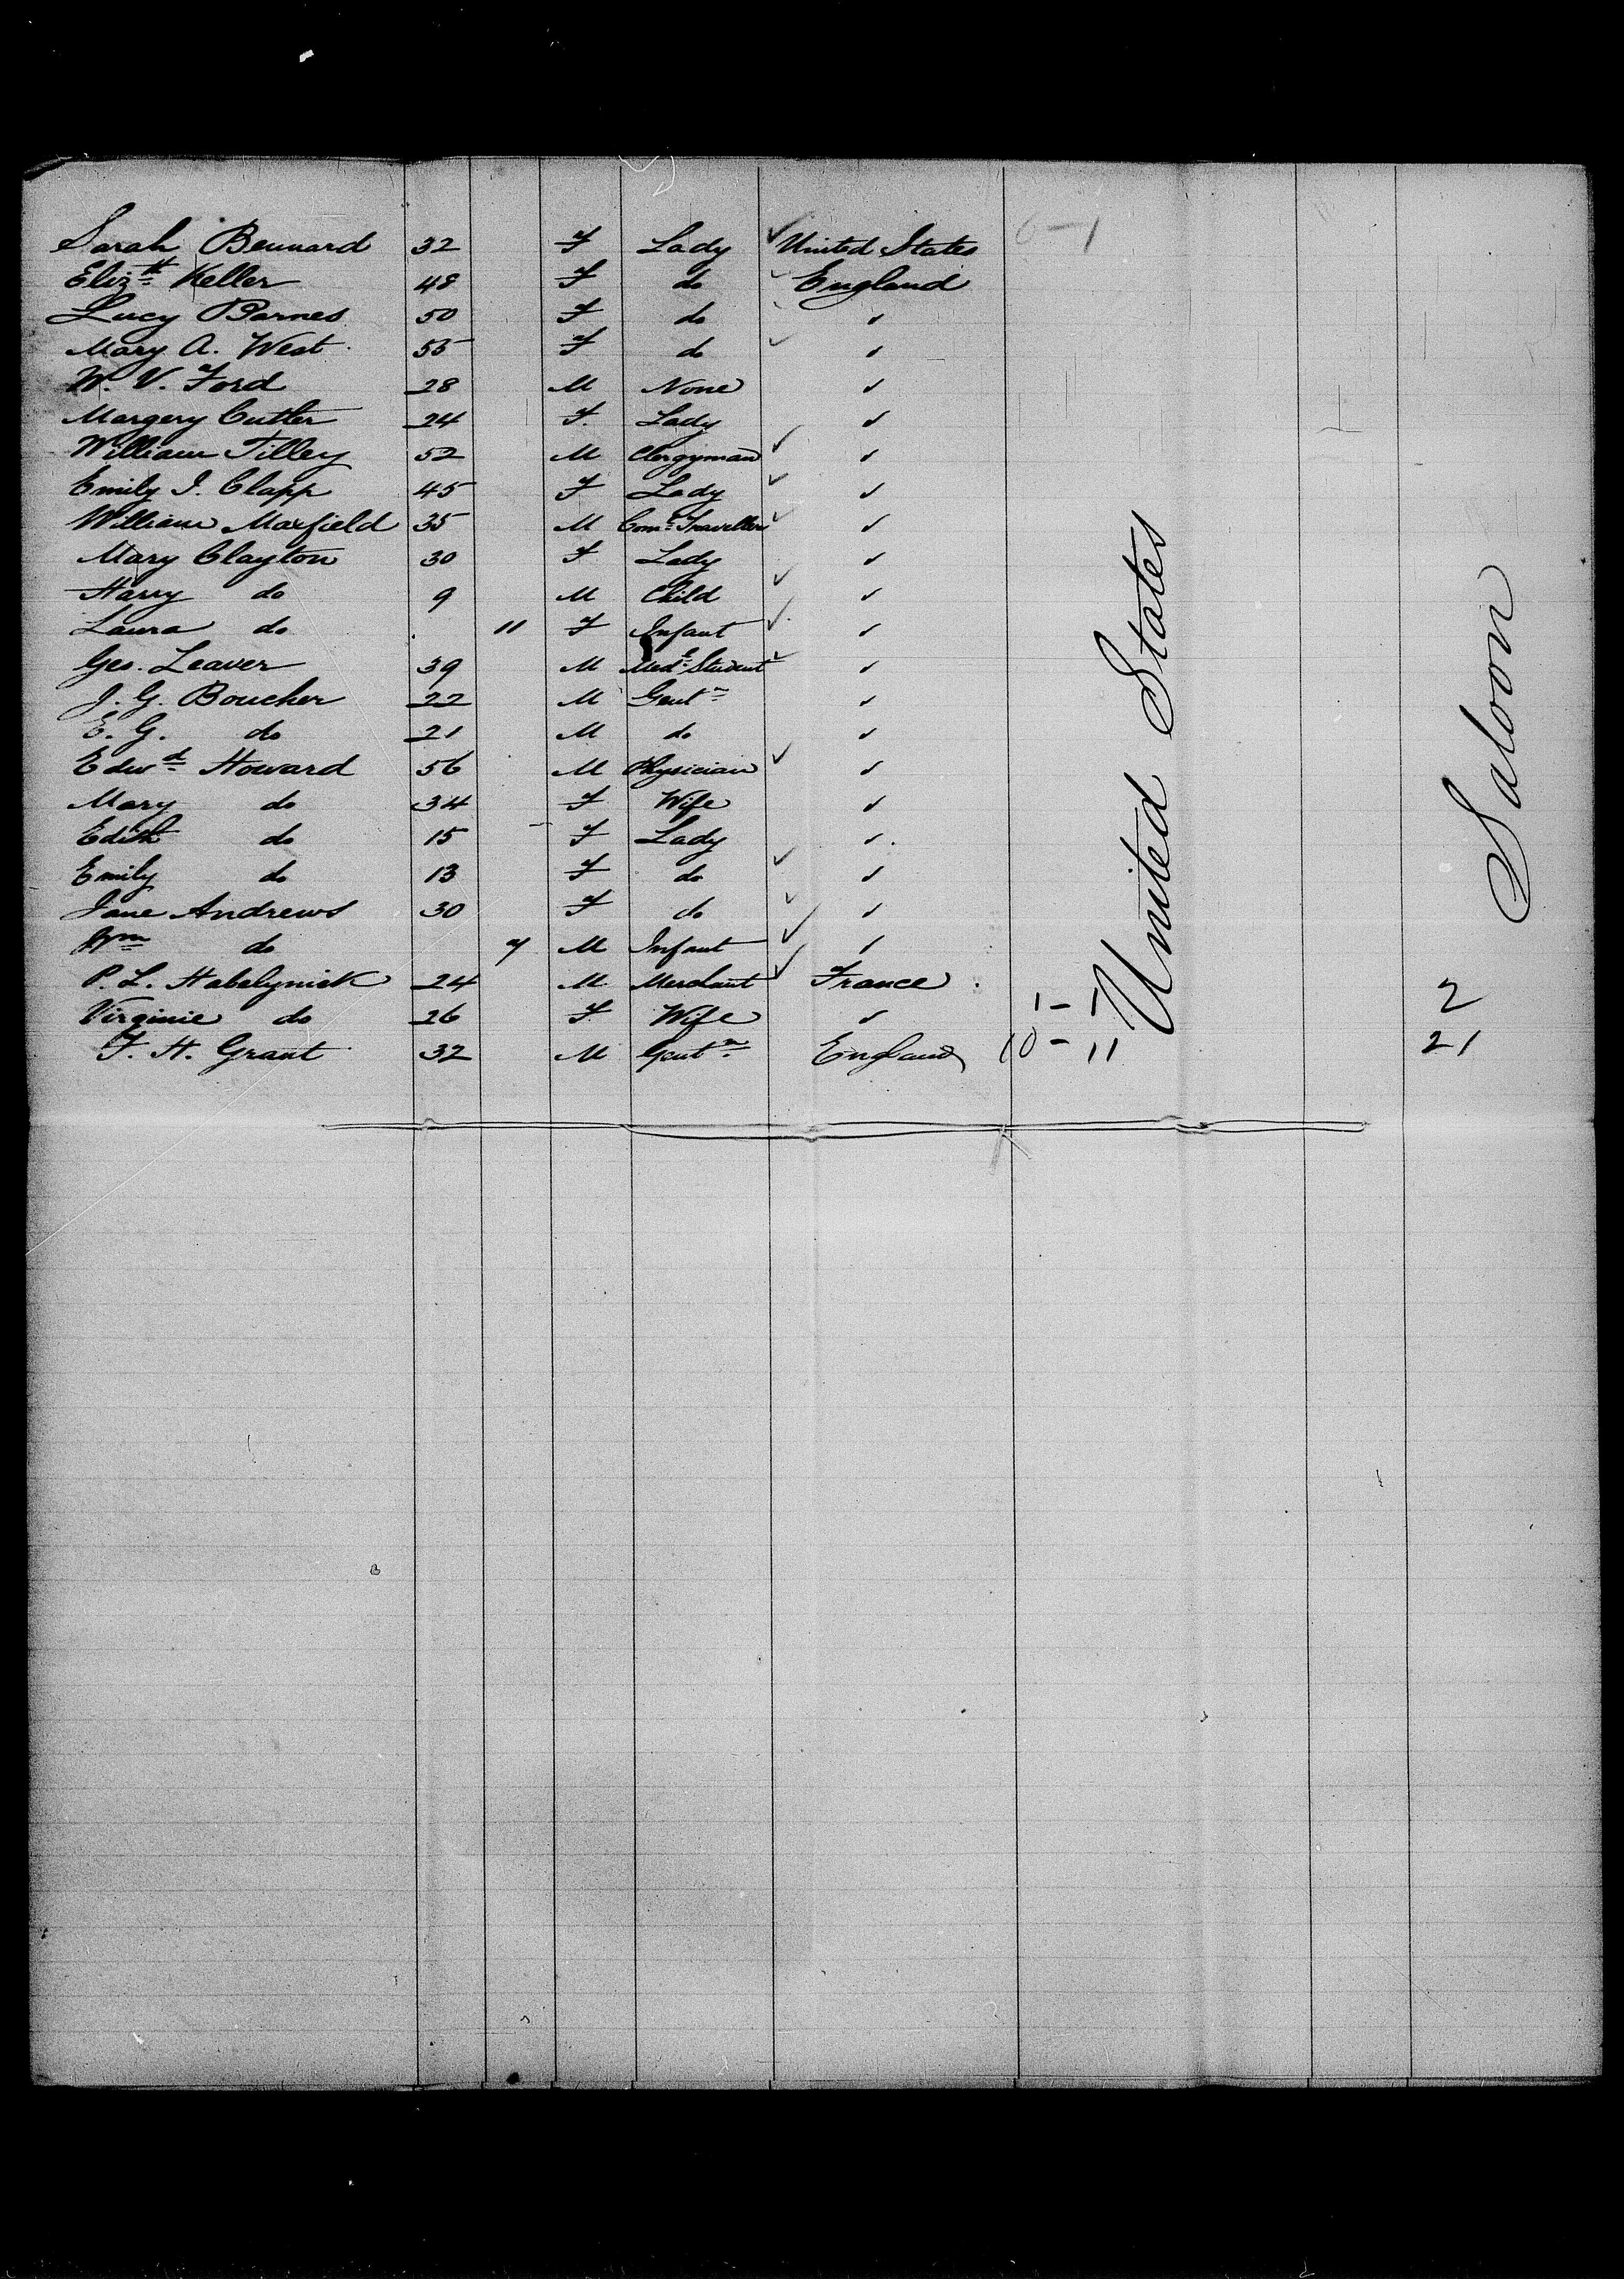 Sarah Bennard 32 F Lady ✓ United States 0-1
Eliz.th Keller 48 F do ✓ England
Lucy Barnes 50 F do ✓ "
Mary A. West 55 F do ✓ "
W. V. Ford 28 M None "
Margery Cutler 24 F. Lady "
William Tilley 52 M Clergyman ✓ "
Emily J. Clapp 45 F Lady ✓ "
William Maxfield 35 M Com.l Traveller ✓ "
Mary Clayton 30 F Lady "
Harry do 9 M Child ✓ "
Laura do 11 F Infant ✓ "
Geo. Leaver 39 M Med.l Student ✓ "
J. G. Boucher 22 M Gent.n "
E. G. do 21 M do "
Edw.d Howard 56 M Physician ✓ "
Mary do 34 F Wife "
Edith do 15 F Lady "
Emily do 13 F do ✓ "
Jane Andrews 30 F do ✓ "
Wm do 7 M Infant ✓ "
P. L. 24 M Merchant ✓ France
Virginie do 26 F Wife " 1-1 2
F. H. Grant 32 M Gent.n England 10-11 21
United States
Saloon